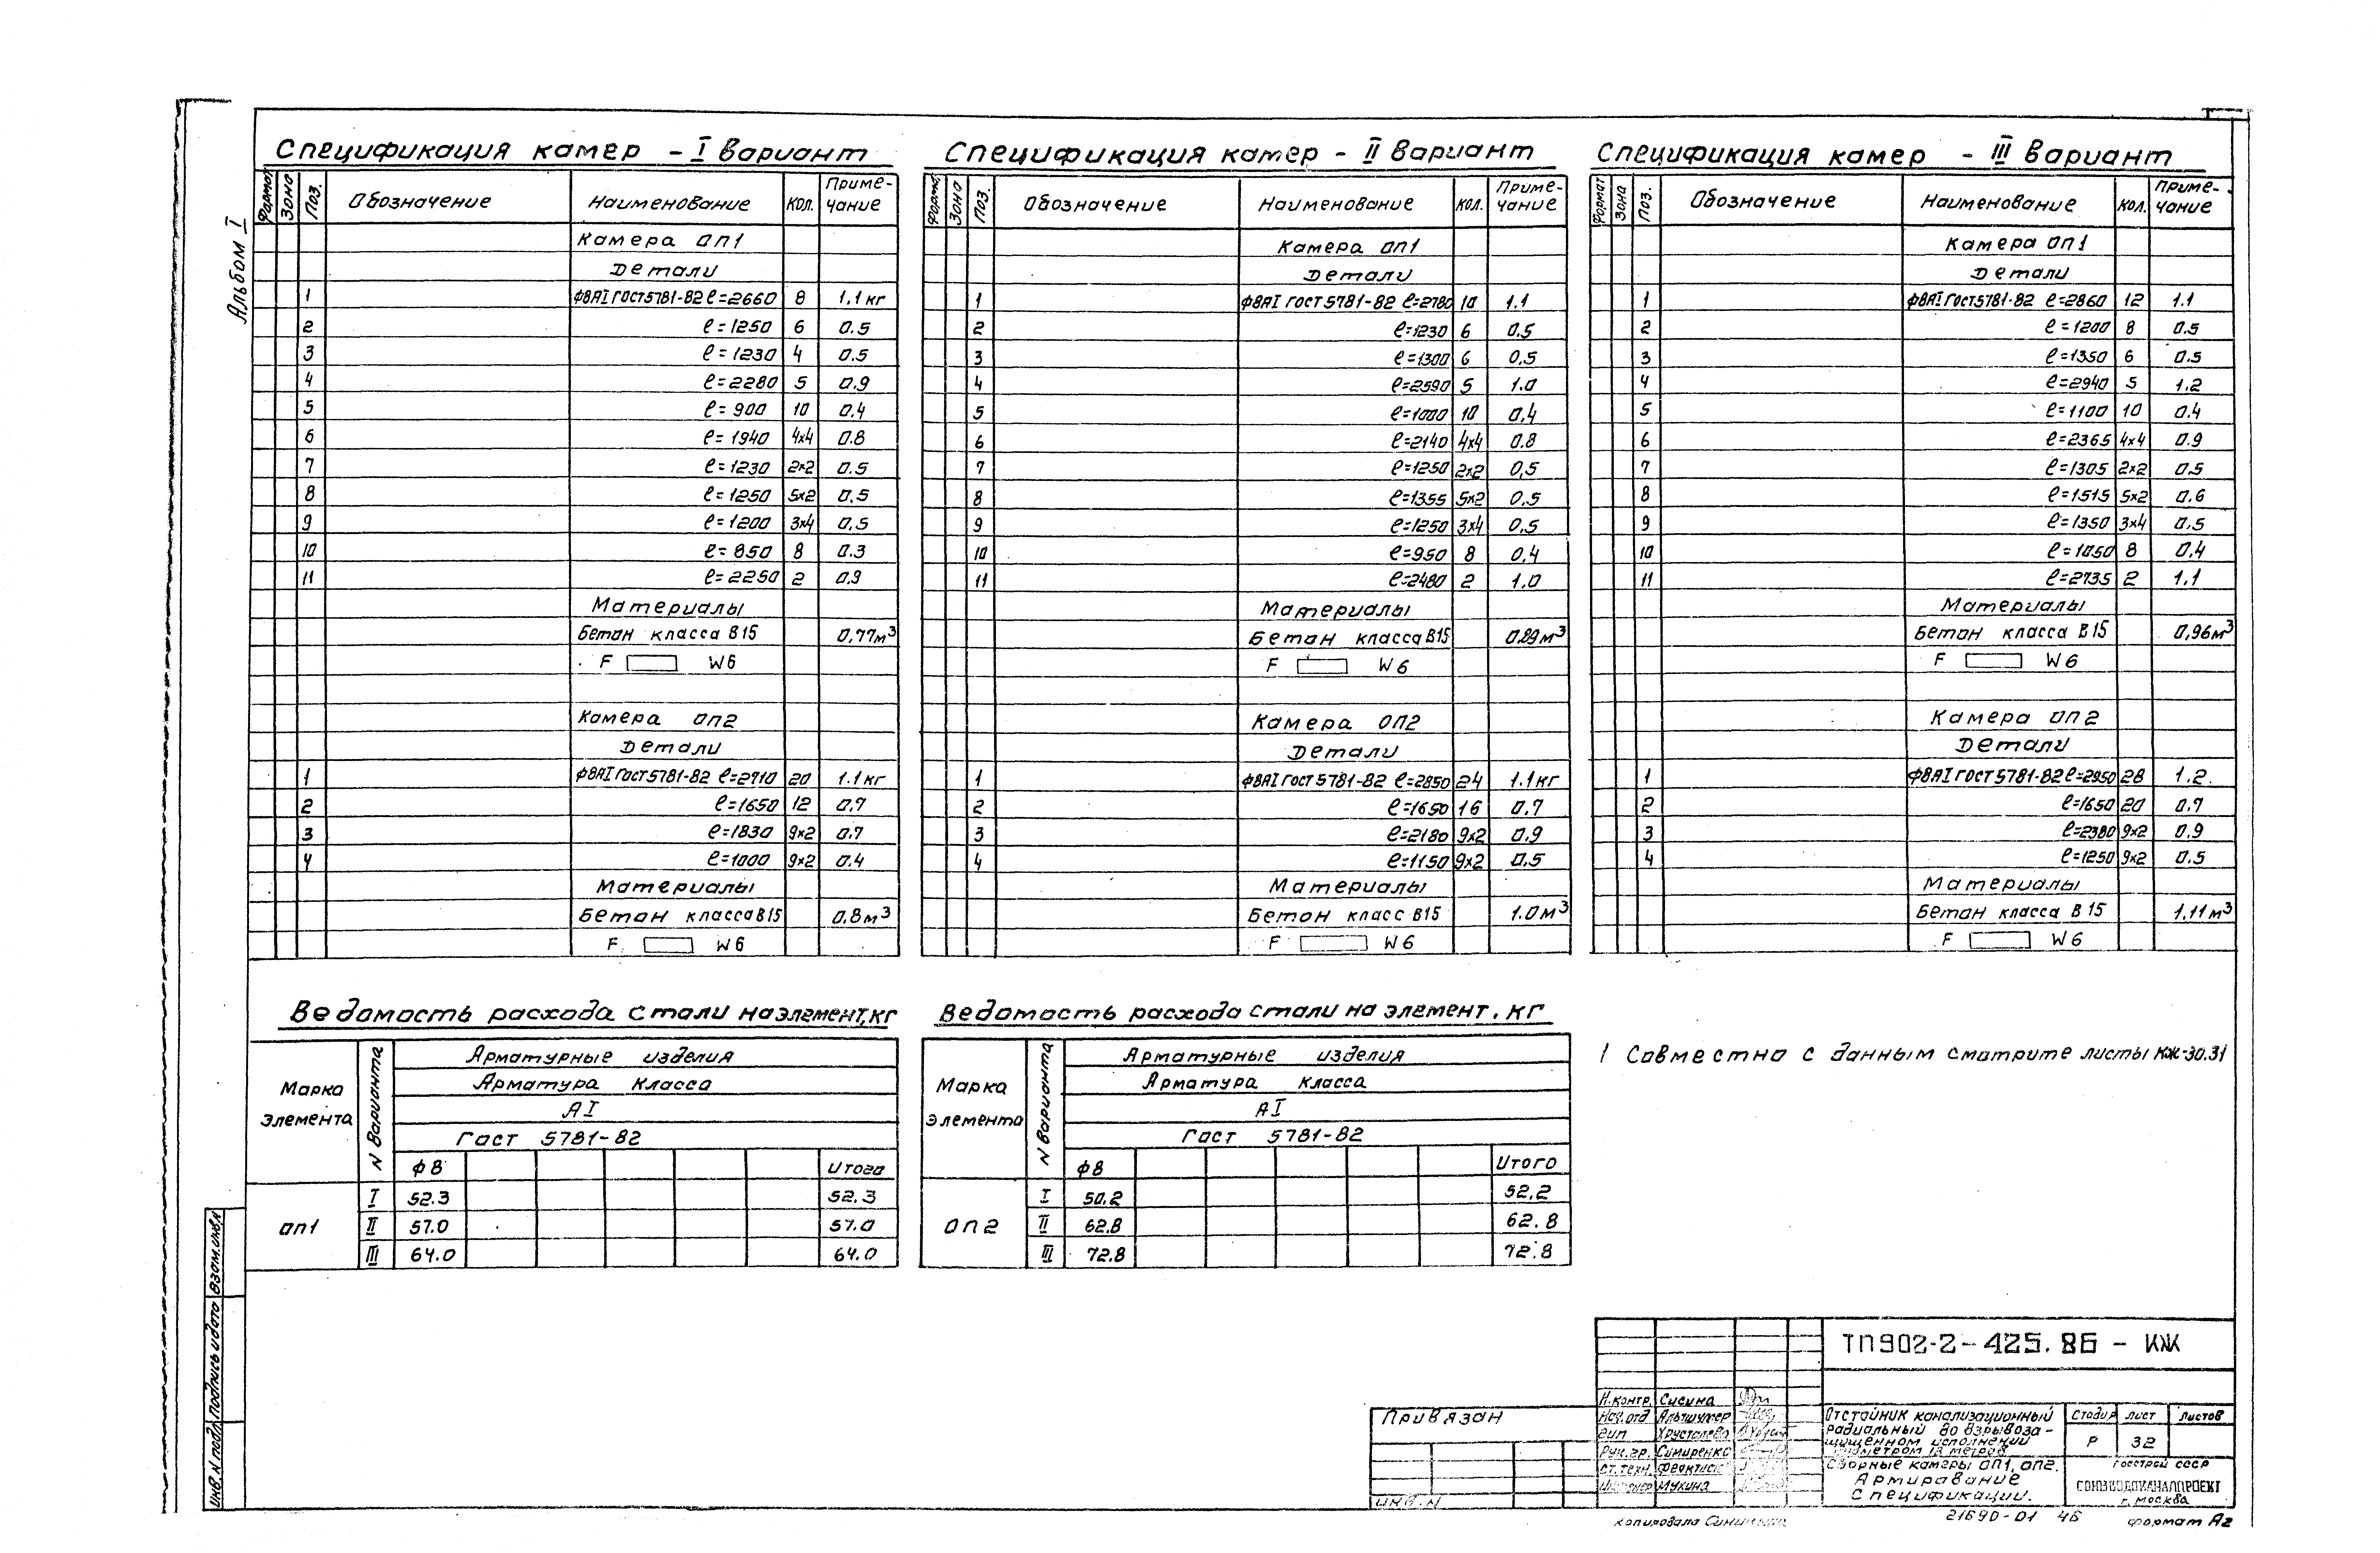 Альбом I
Спецификация камер - I вариант
Формат Зона Поз. Обозначение Наименование Кол. Приме-чание
Камера ОП1
Детали
1 Ф8АI ГОСТ 5781-82 ℓ=2660 8 1.1 кг
2 ℓ=1250 6 0.5
3 ℓ=1230 4 0.5
4 ℓ=2280 5 0.9
5 ℓ=900 10 0.4
6 ℓ=1940 4х4 0.8
7 ℓ=1230 2х2 0.5
8 ℓ=1250 5х2 0.5
9 ℓ=1200 3х4 0.5
10 ℓ=850 8 0.3
11 ℓ=2250 2 0.9
Материалы
Бетон класса В15 0,77м³
F W6
Камера ОП2
Детали
1 Ф8АI ГОСТ 5781-82 ℓ=2710 20 1.1 кг
2 ℓ=1650 12 0.7
3 ℓ=1830 9х2 0.7
4 ℓ=1000 9х2 0.4
Материалы
Бетон класса В15 0,8м³
F W6
Спецификация камер - II вариант
Формат Зона Поз. Обозначение Наименование Кол. Приме-чание
Камера ОП1
Детали
1 Ф8АI ГОСТ 5781-82 ℓ=2780 10 1.1
2 ℓ=1230 6 0.5
3 ℓ=1300 6 0.5
4 ℓ=2590 5 1.0
5 ℓ=1000 10 0.4
6 ℓ=2140 4х4 0.8
7 ℓ=1250 2х2 0,5
8 ℓ=1355 5х2 0.5
9 ℓ=1250 3х4 0.5
10 ℓ=950 8 0.4
11 ℓ=2480 2 1.0
Материалы
Бетон класса В15 0.89м³
F W6
Камера ОП2
Детали
1 Ф8АI ГОСТ 5781-82 ℓ=2850 24 1.1 кг
2 ℓ=1650 16 0.7
3 ℓ=2180 9х2 0.9
4 ℓ=1150 9х2 0.5
Материалы
Бетон класс В15 1.0м³
F W6
Спецификация камер - III вариант
Формат Зона Поз. Обозначение Наименование Кол. Приме-чание
Камера ОП1
Детали
1 Ф8АI ГОСТ 5781-82 ℓ=2860 12 1.1
2 ℓ=1200 8 0.5
3 ℓ=1350 6 0.5
4 ℓ=2940 5 1.2
5 ℓ=1100 10 0.4
6 ℓ=2365 4х4 0.9
7 ℓ=1305 2х2 0.5
8 ℓ=1515 5х2 0.6
9 ℓ=1350 3х4 0.5
10 ℓ=1050 8 0,4
11 ℓ=2735 2 1.1
Материалы
Бетон класса В15 0,96м³
F W6
Камера ОП2
Детали
1 Ф8АI ГОСТ 5781-82 ℓ=2950 28 1.2
2 ℓ=1650 20 0.7
3 ℓ=2380 9х2 0.9
4 ℓ=1250 9х2 0.5
Материалы
Бетон класса В15 1,11м³
F W6
Ведомость расхода стали на элемент, кг
Марка элемента N варианта
Арматурные изделия
Арматура класса
АI
ГОСТ 5781-82
Ф8 Итого
ОП1
I 52.3 52.3
II 57.0 57.0
III 64.0 64.0
Ведомость расхода стали на элемент, кг
Марка элемента N варианта
Арматурные изделия
Арматура класса
АI
ГОСТ 5781-82
Ф8 Итого
ОП2
I 50.2 52.2
II 62.8 62.8
III 72.8 72.8
1 Совместно с данным смотрите листы КЖ-30.31
Инв.N подл. Подпись и дата Взам.инв.N
Привязан
Инв.N
ТП902-2-425.86 - КЖ
Н.контр. Сисина
Нач.отд Альтшулер
ГИП Хрусталева
Рук.гр. Симиренко
Ст.техн.
Мухина
Отстойник канализационный
радиальный во взрывоза-
щищенном исполнении
диаметром 18 метров
Стадия Лист Листов
Р 32
Сборные камеры ОП1, ОП2.
Армирование
Спецификации.
Госстрой СССР
СОЮЗВОДОКАНАЛПРОЕКТ
г. Москва
Копировала
21690-01 46
Формат А2